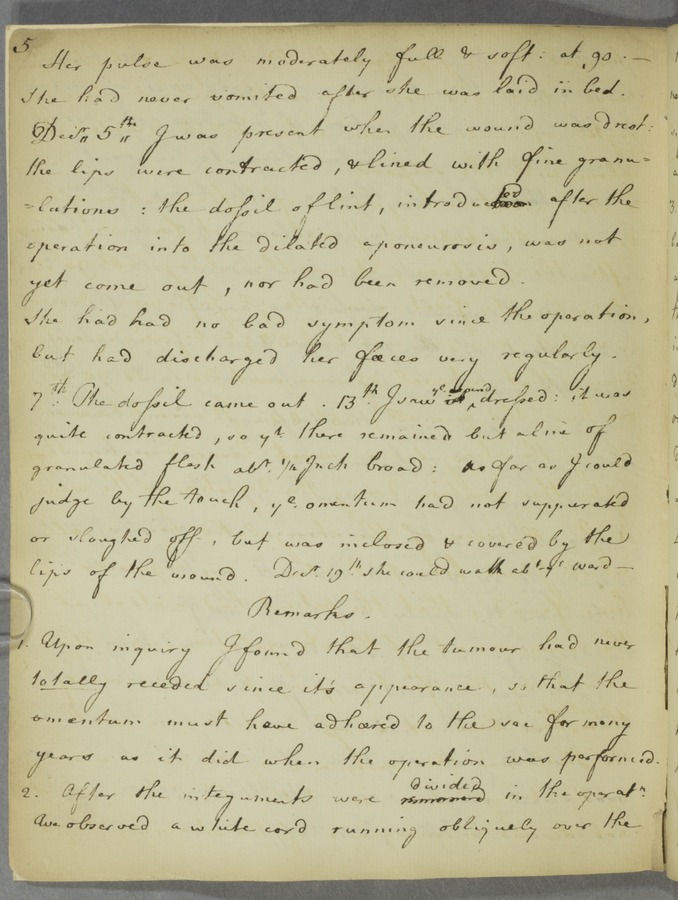 5
Her pulse was moderately full & soft: at 90. —
She had never vomited after she was laid in bed.
Decr. 5th I was present when the wound was drest:
the lips were contracted, & lined with fine granu=
=lations: the dossil of lint, introduced after the
operation into the dilated aponeurosis, was not
yet come out, nor had been removed.
She had had no bad symptom since the operation,
but had discharged her fæces very regularly.
7th: The dossil came out. 13th I saw ye wound dressed: it was
quite contracted, so yt there remained but a line of
granulated flesh abt. 1/4 Inch broad: as far as I could
judge by the touch, ye omentum had not suppurated
or sloughed off, but was inclosed & covered by the
lips of the wound. Decr. 19th she could walk abt ye ward —
Remarks.
1. Upon inquiry I found that the tumour had never
totally receded since it's appearance, so that the
omentum must have adhæred to the sac for many
years as it did when the operation was performed.
2. After the integuments were divided in the operatn.
we observed a white cord running obliquely over the